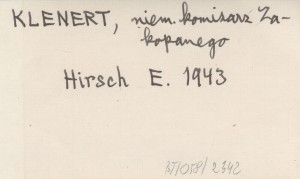 KLENERT, niem. komisarz Za-
kopanego
Hirsch E. 1943